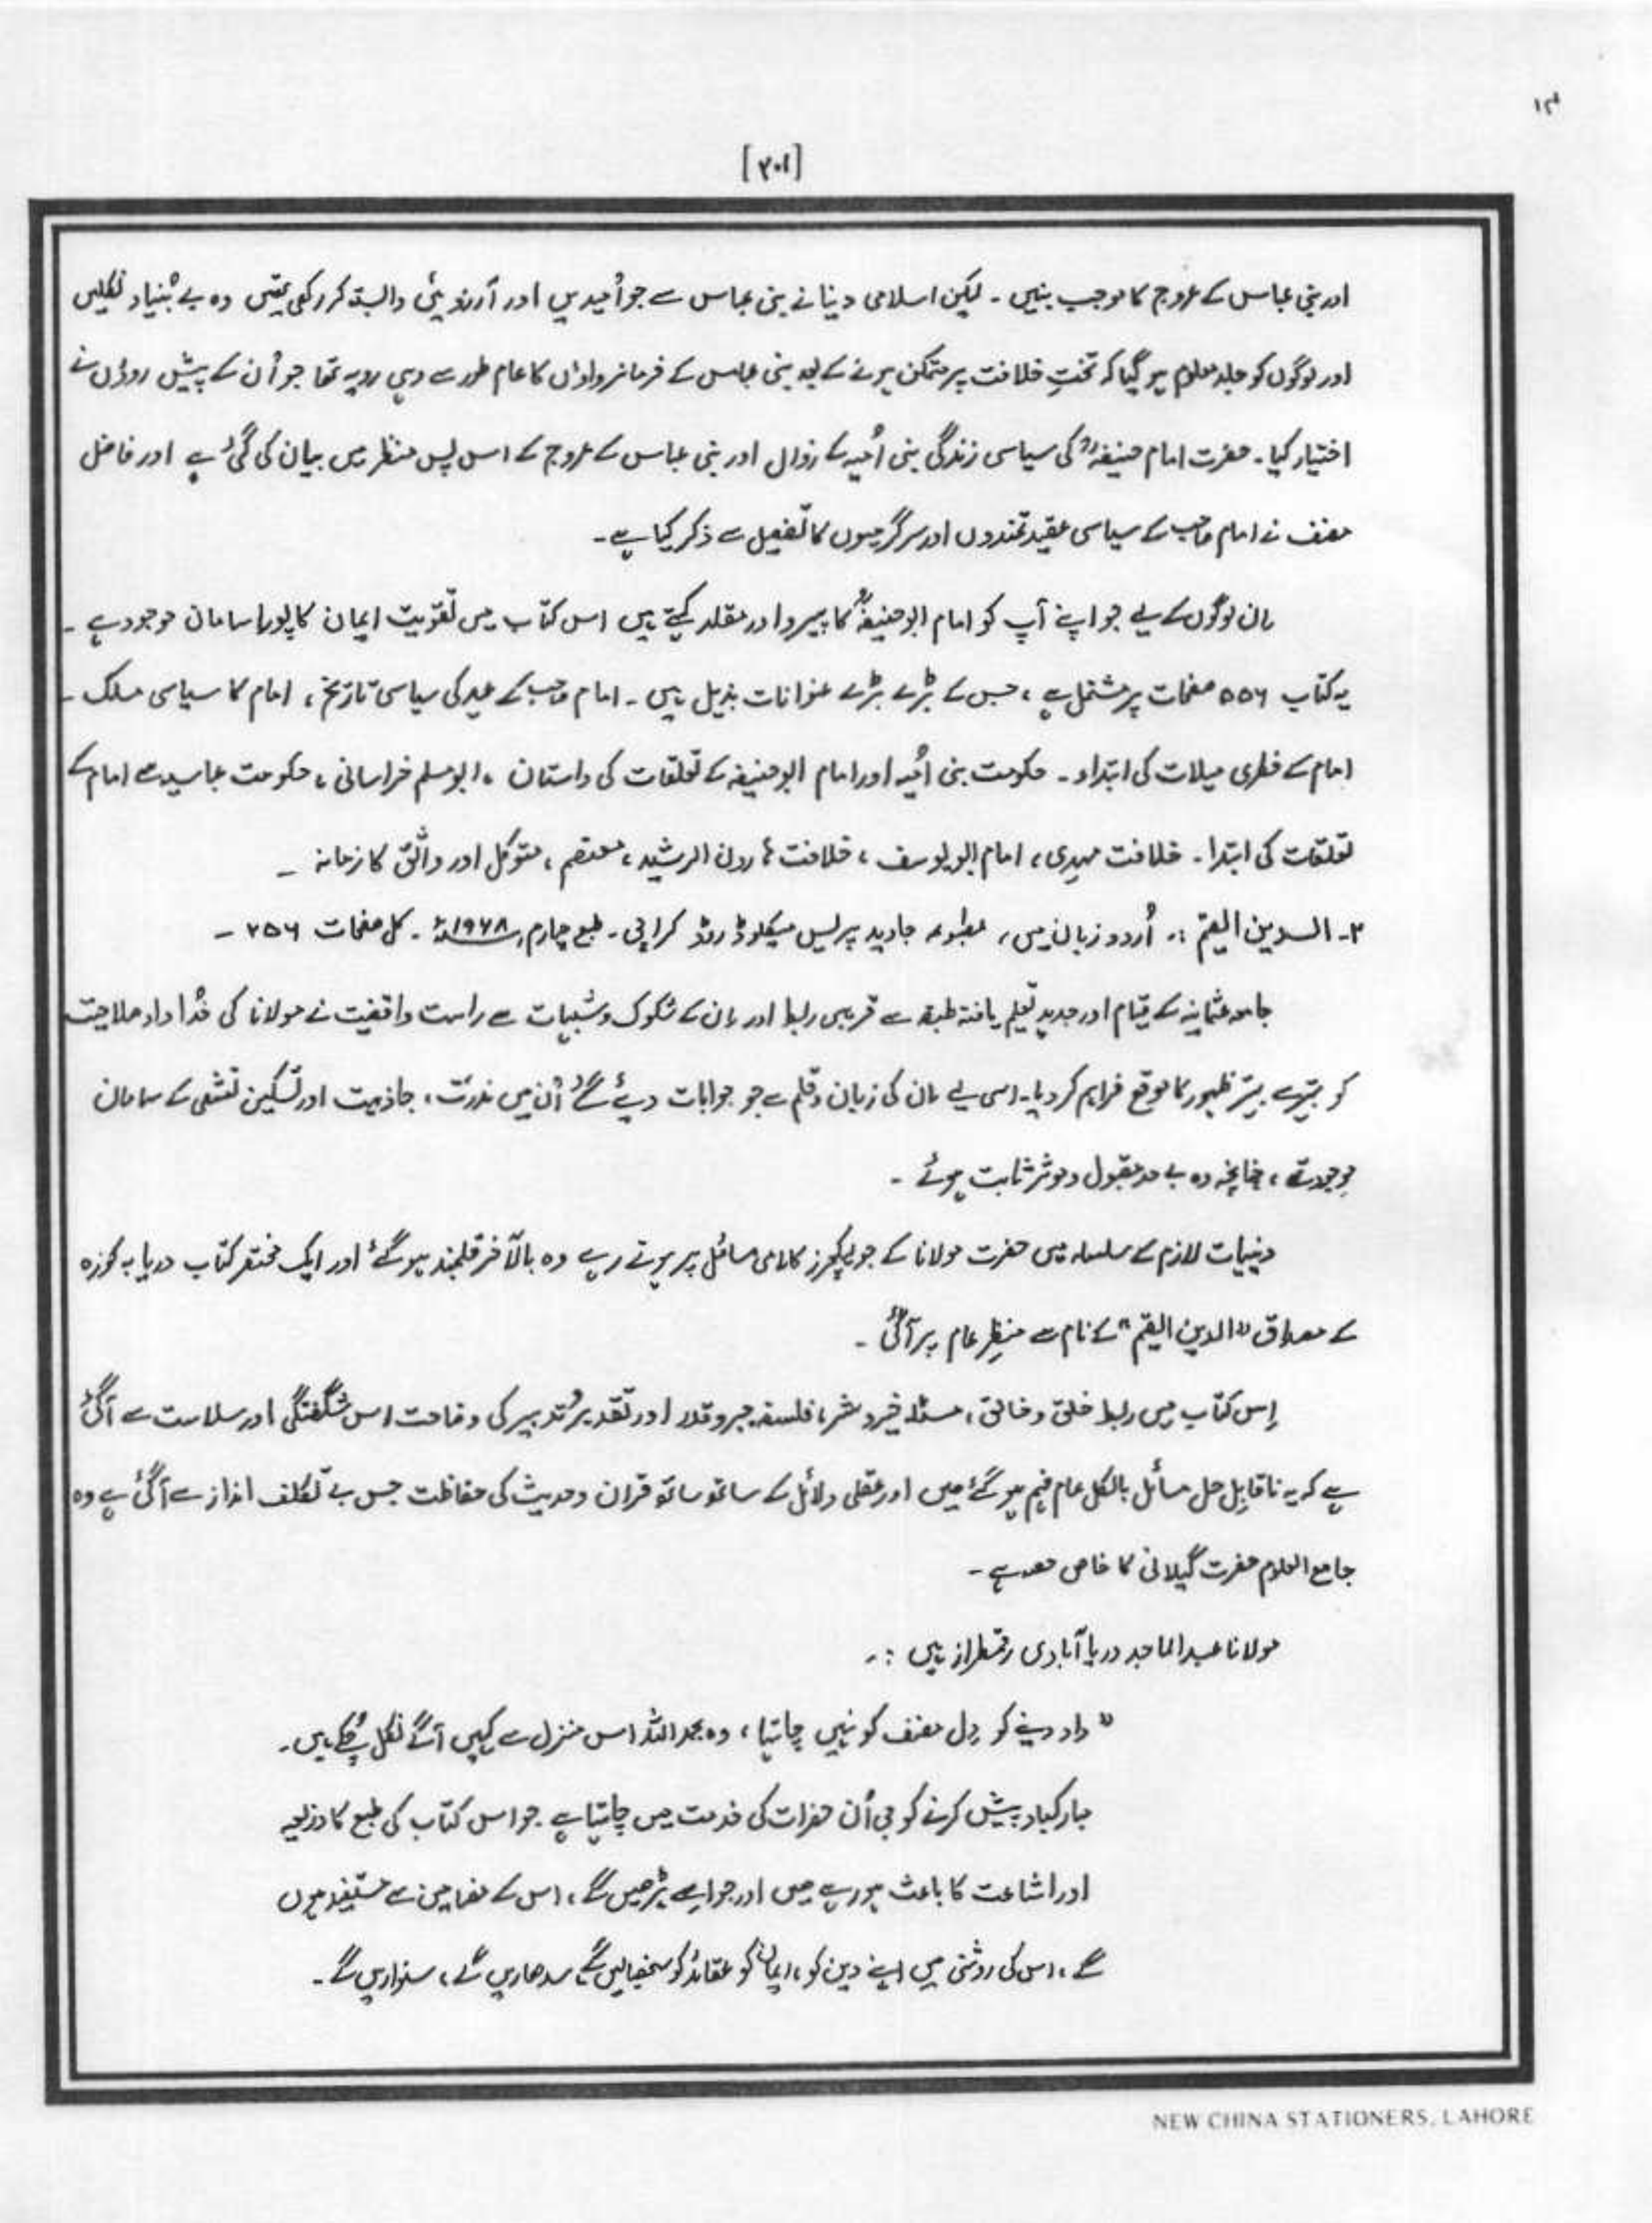 ۱۴
[۲۰۱]
اور بنی عباس کے عروج کا موجب بنیں ۔ لیکن اسلامی دنیا نے بنی عباس سے جو اُمیدیں اور آرزوئیں وابستہ کر رکھی تھیں وہ بے بُنیاد نکلیں
اور لوگوں کو جلد معلوم ہو گیا کہ تختِ خلافت پر متمکن ہونے کے بعد بنی عباس کے فرمانرواؤں کا عام طور سے وہی رویہ تھا جو اُن کے پیش روؤں نے
اختیار کیا ۔ حضرت امام حنیفہؒ کی سیاسی زندگی بنی اُمیہ کے زوال اور بنی عباس کے عروج کے اس پس منظر میں بیان کی گئی ہے اور فاضل
مصنف نے امام صاحب کے سیاسی عقیدتمندوں اور سرگرمیوں کا تفصیل سے ذکر کیا ہے ۔
اِن لوگوں کے لیے جو اپنے آپ کو امام ابو حنیفہؒ کا پیرو اور مقلد کہتے ہیں اس کتاب میں تقویت ایمان کا پورا سامان موجود ہے ۔
یہ کتاب ۵۵۶ صفحات پر مشتمل ہے ، جس کے بڑے بڑے عنوانات بذیل ہیں ۔ امام صاحب کے عہد کی سیاسی تاریخ ، امام کا سیاسی مسلک ۔
امام کے فطری میلات کی ابتداء ۔ حکومت بنی اُمیہ اور امام ابو حنیفہ کے تعلقات کی داستان ، ابو مسلم خراسانی ، حکومت عباسیہ سے امام کے
تعلقات کی ابتدا ۔ خلافت مہدی ، امام ابو یوسف ، خلافت ہارون الرشید ، معتصم ، متوکل اور واثق کا زمانہ ۔
۲۔ الـدین القیم :۔ اُردو زبان میں ، مطبوعہ جاوید پریس میکلوڈ روڈ کراچی ۔ طبع چہارم ۱۹۶۸ء ۔ کل صفحات ۲۵۶ ۔
جامعہ عثمانیہ کے قیام اور جدید تعلیم یافتہ طبقہ سے قریبی ربط اور اِن کے شکوک و شبہات سے راست واقفیت نے مولانا کی خُدا داد صلاحیت
کو بہتر سے بہتر ظہور کا موقع فراہم کر دیا ۔ اسی لیے اِن کی زبان و قلم سے جو جوابات دیئے گئے اُن میں ندرت ، جاذبیت اور تسکین تشفی کے سامان
موجود تھے ، چنانچہ وہ بے حد مقبول و موثر ثابت ہوئے ۔
دینیات لازم کے سلسلہ میں حضرت مولانا کے جو لیکچرز کلامی مسائل پر ہوتے رہے وہ بالآخر قلمبند ہو گئے اور ایک مختصر کتاب دریا بہ کوزہ
کے مصداق "الدین القیم" کے نام سے منظرِ عام پر آئی ۔
اِس کتاب میں ربط خلق و خالق ، مسئلہ خیر و شر ، فلسفہ جبر و قدر اور تقدیر و تدبیر کی وضاحت اس شگفتگی اور سلاست سے آگئی
ہے کہ یہ ناقابل حل مسائل بالکل عام فہم ہو گئے ہیں اور عقلی دلائل کے ساتھ ساتھ قران و حدیث کی حفاظت جس بے تکلف انداز سے آگئی ہے وہ
جامع العلوم حضرت گیلانی کا خاص حصہ ہے ۔
مولانا عبدالماجد دریا آبادی رقمطراز ہیں :۔
" داد دینے کو دِل مصنف کو نہیں چاہتا ، وہ بحمد اللہ اس منزل سے کہیں آگے نکل چُکے ہیں ۔
مبارکباد پیش کرنے کو جی اُن حضرات کی خدمت میں چاہتا ہے جو اس کتاب کی طبع کا ذریعہ
اور اشاعت کا باعث ہو رہے ہیں اور جو اسے پڑھیں گے ، اس کے مضامین سے مستفید ہوں
گے ، اس کی روشنی میں اپنے دین کو ، ایمان کو عقائد کو سنبھالیں گے ، سدھاریں گے ، سنواریں گے ۔
NEW CHINA STATIONERS, LAHORE